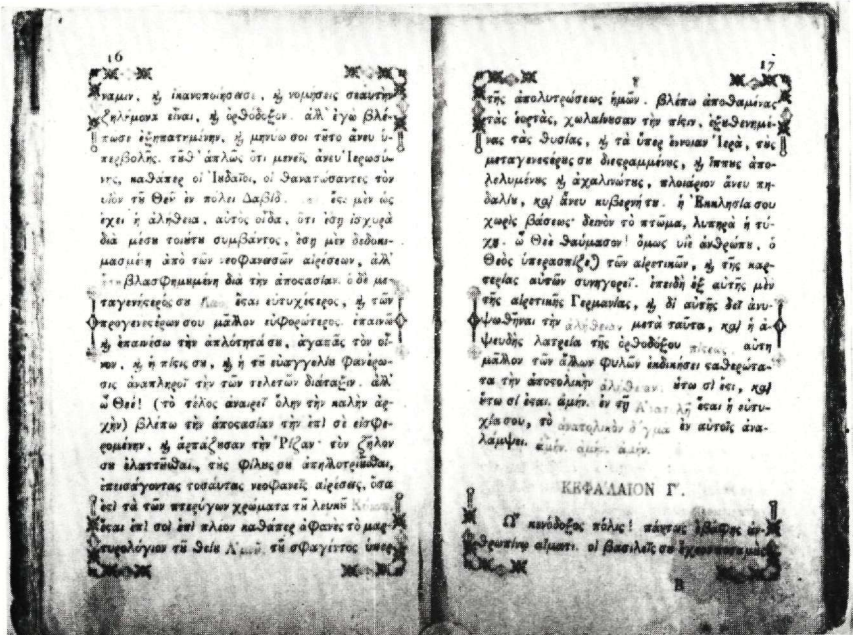 16
ναμιν, ϗ ἱκανοποιήσασι, ϗ νομήσεις σεαυτὴν
ζηλήμονα εἶναι, ϗ ὀρθόδοξον. ἀλλ' ἐγὼ βλέ-
πωσε ἐξηπατημένην, ϗ μηνύω σοι τȣ̃το ἄνευ ὑ-
περβολῆς. τȣθ' ἁπλῶς ὅτι μενεῖς ἄνευ Ἱερωσύ-
νης, καθάπερ οἱ Ἰȣδαῖοι, οἱ θανατώσαντες τὸν
υἱὸν τȣ͂ Θεȣ͂ ἐν πόλει Δαβίδ. μὲν ὡς
ἔχει ἡ ἀλήθεια, αὐτὸς οἶδα, ὅτι ἔσῃ ἰσχυρὰ
διὰ μέσȣ τοιȣ́τȣ συμβάντος, ἔσῃ μὲν δεδοκι-
μασμένη ἀπὸ τῶν νεοφανεισῶν αἱρέσεων, ἀλλ'
βλασφημημένη διὰ τὴν ἀποςασίαν. ὁ δὲ με-
ταγενέςερός σȣ ἔςαι εὐτυχέςερος, ϗ τῶν
προγενεςέρων σου μᾶλλον εὐφορώτερος. ἐπαινῶ
ϗ ἐπαινέσω τὴν ἁπλότητά σȣ, ἀγαπᾷς τὸν οἶ-
νον, ϗ ἡ πίςις σȣ, ϗ ἡ τȣ͂ εὐαγγελίȣ φανέρω-
σις ἀναπληροῖ τὴν τῶν τελετῶν διάταξιν. ἀλλ'
ὦ Θεέ! (τὸ τέλος ἀναιρεῖ ὅλην τὴν καλὴν ἀρ-
χὴν) βλέπω τὴν ἀποςασίαν τὴν ἐπὶ σὲ εἰσφε-
ρομένην, ϗ ἁρπάζȣσαν τὴν Ῥίζαν· τὸν ζῆλον
σȣ ἐλαττȣ͂σθαι, τȣ̀ς φίλȣς σȣ ἀπηλλοτριῶσθαι,
ἐπεισάγοντας τοσαύτας νεοφανεῖς αἱρέσεις, ὅσα
ἐςὶ τὰ τῶν πτερύγων χρώματα τȣ͂ λευκȣ͂
ἔςαι ἐπὶ σοὶ ἐπὶ πλέον καθάπερ ἀφανὲς τὸ μαρ-
τυρολόγιον τȣ͂ θείȣ Ἀμνȣ͂ τȣ͂ σφαγέντος ὑπὲρ
17
τῆς ἀπολυτρώσεως ἡμῶν. βλέπω ἀποθαμένας
τὰς ἑορτὰς, χωλαίνȣσαν τὴν πίςιν, ἐξȣθενημέ-
νας τὰς θυσίας, ϗ τὰ ὑπὲρ ἔννοιαν Ἱερὰ, τȣ̀ς
μεταγενεςέρȣς σȣ διεςραμμένȣς, ϗ ἵππȣς ἀπο-
λελυμένȣς ϗ ἀχαλινώτȣς, πλοιάριον ἄνευ πη-
δαλίȣ, καὶ ἄνευ κυβερνήτȣ. ἡ Ἐκκλησία σου
χωρὶς βάσεως· δεινὸν τὸ πτῶμα, λυπηρὰ ἡ τύ-
χη. ὦ Θεέ θαύμασον! ὅμως υἱὲ ἀνθρώπȣ, ὁ
Θεὸς ὑπερασπίζεται τῶν αἱρετικῶν, ϗ τῆς καρ-
τερίας αὐτῶν συνηγορεῖ. ἐπειδὴ ἐξ αὐτῆς μὲν
τῆς αἱρετικῆς Γερμανίας, ϗ δι αὐτῆς δεῖ ἀνυ-
ψωθῆναι τὴν ἀλήθειαν μετὰ ταῦτα, καὶ ἡ ἀ-
ψευδὴς λατρεία τῆς ὀρθοδόξου πίςεως. αὕτη
μᾶλλον τῶν ἄλλων φυλῶν ἐκδικήσει ςαθερώτα-
τα τὴν ἀποςολικὴν ἀλήθειαν. ȣ̔́τω σί ἐςι, καὶ
ȣ̔́τω σί ἔςαι. ἀμήν. ἐν τῇ Ἀνατολῇ ἔςαι ἡ εὐτυ-
χία σου, τὸ ἀνατολικὸν δόγμα ἐν αὐτοῖς ἀνα-
λάμψει. ἀμήν. ἀμήν. ἀμήν.
ΚΕΦΑΛΑΙΟΝ Γ'.
Ὦ κενόδοξος πόλις! πάντως ἐβάφης ἀν-
θρωπίνῳ αἵματι. οἱ βασιλεῖς σȣ
B